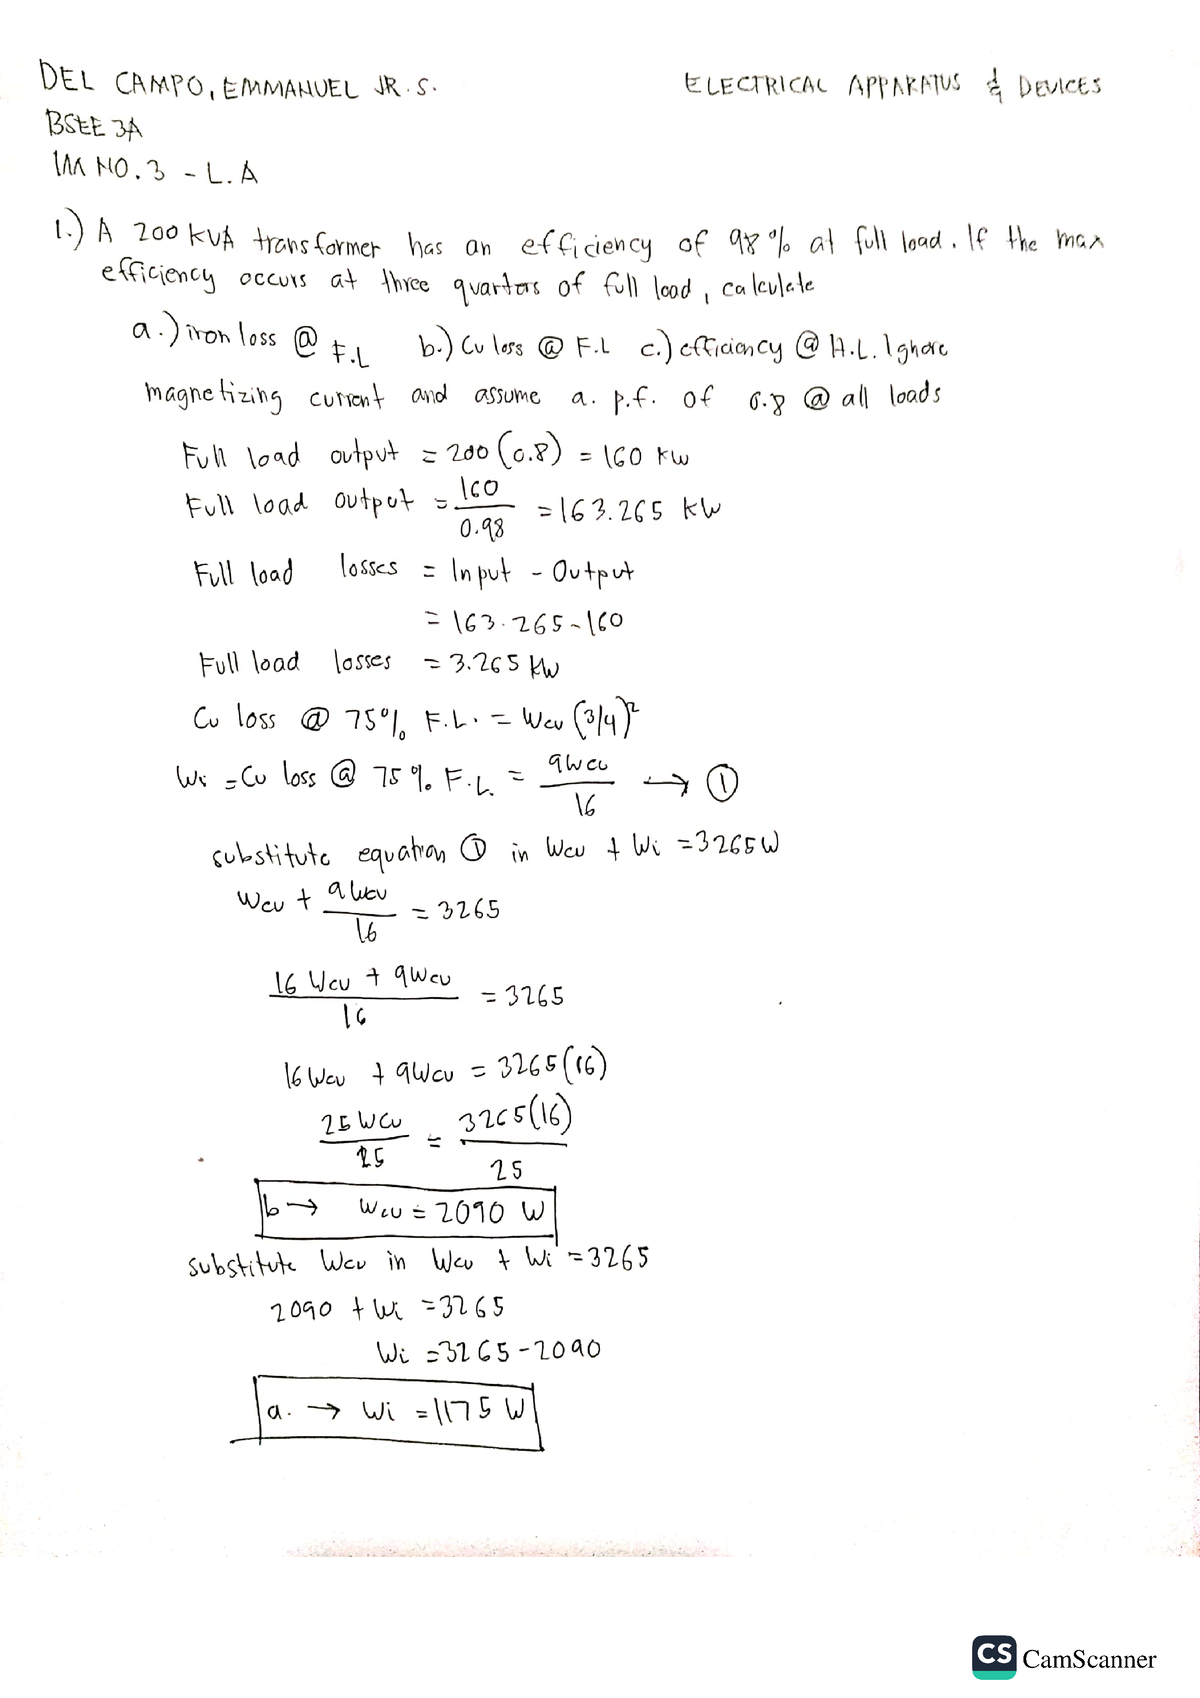 DEL CAMPO, EMMANUEL JR. S.
ELECTRICAL APPARATUS & DEVICES
BSEE 3A
IM NO. 3 - L.A
1.) A 200 kVA transformer has an efficiency of 98 % at full load. If the max
efficiency occurs at three quarters of full load, calculate
a.) iron loss @ F.L b.) Cu loss @ F.L c.) efficiency @ H.L. Ignore
magnetizing current and assume a. p.f. of 0.8 @ all loads
Full load output = 200 (0.8) = 160 kW
Full load output = 160/0.98 = 163.265 kW
Full load losses = Input - Output
= 163.265 - 160
Full load losses = 3.265 kW
Cu loss @ 75% F.L. = Wcu (3/4)²
Wi = Cu loss @ 75 % F.L. = 9Wcu/16 → ①
substitute equation ① in Wcu + Wi = 3265 W
Wcu + 9Wcu/16 = 3265
16 Wcu + 9Wcu/16 = 3265
16 Wcu + 9Wcu = 3265 (16)
25 Wcu/25 = 3265(16)/25
b → Wcu = 2090 W
substitute Wcu in Wcu + Wi = 3265
2090 + Wi = 3265
Wi = 3265 - 2090
a. → Wi = 1175 W
CS CamScanner